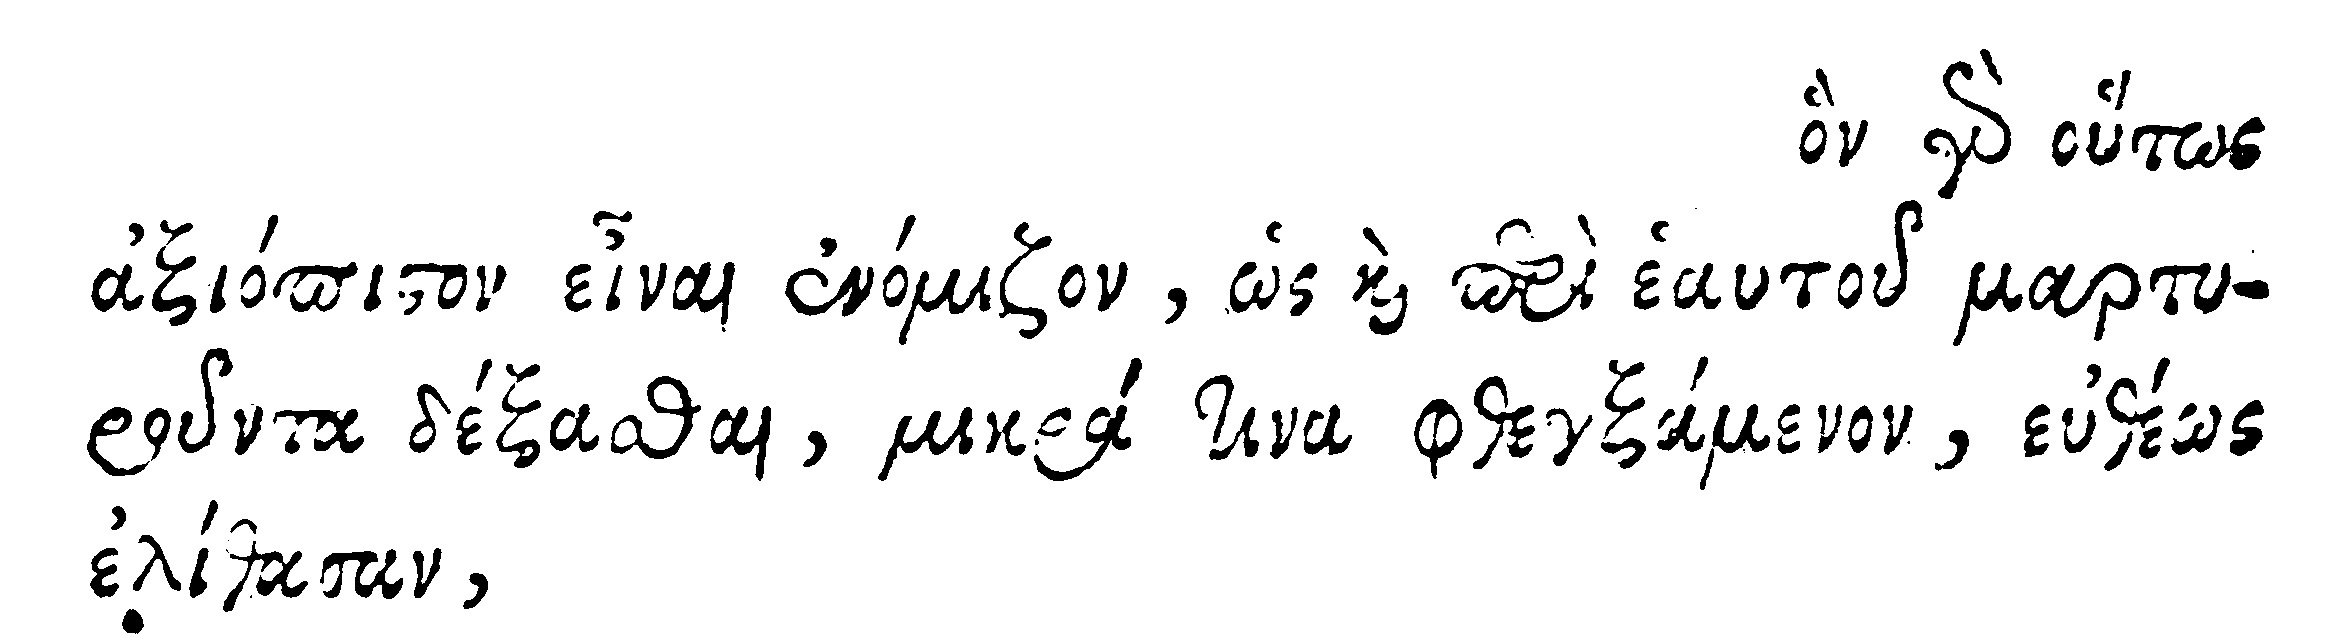 ὃν γὰρ οὕτως
ἀξιόπιστον εἶναι ἐνόμιζον, ὡς καὶ περὶ ἑαυτοῦ μαρτυ-
ροῦντα δέξασθαι, μικρά τινα φθεγξάμενον, εὐθέως
ἐλίθασαν,